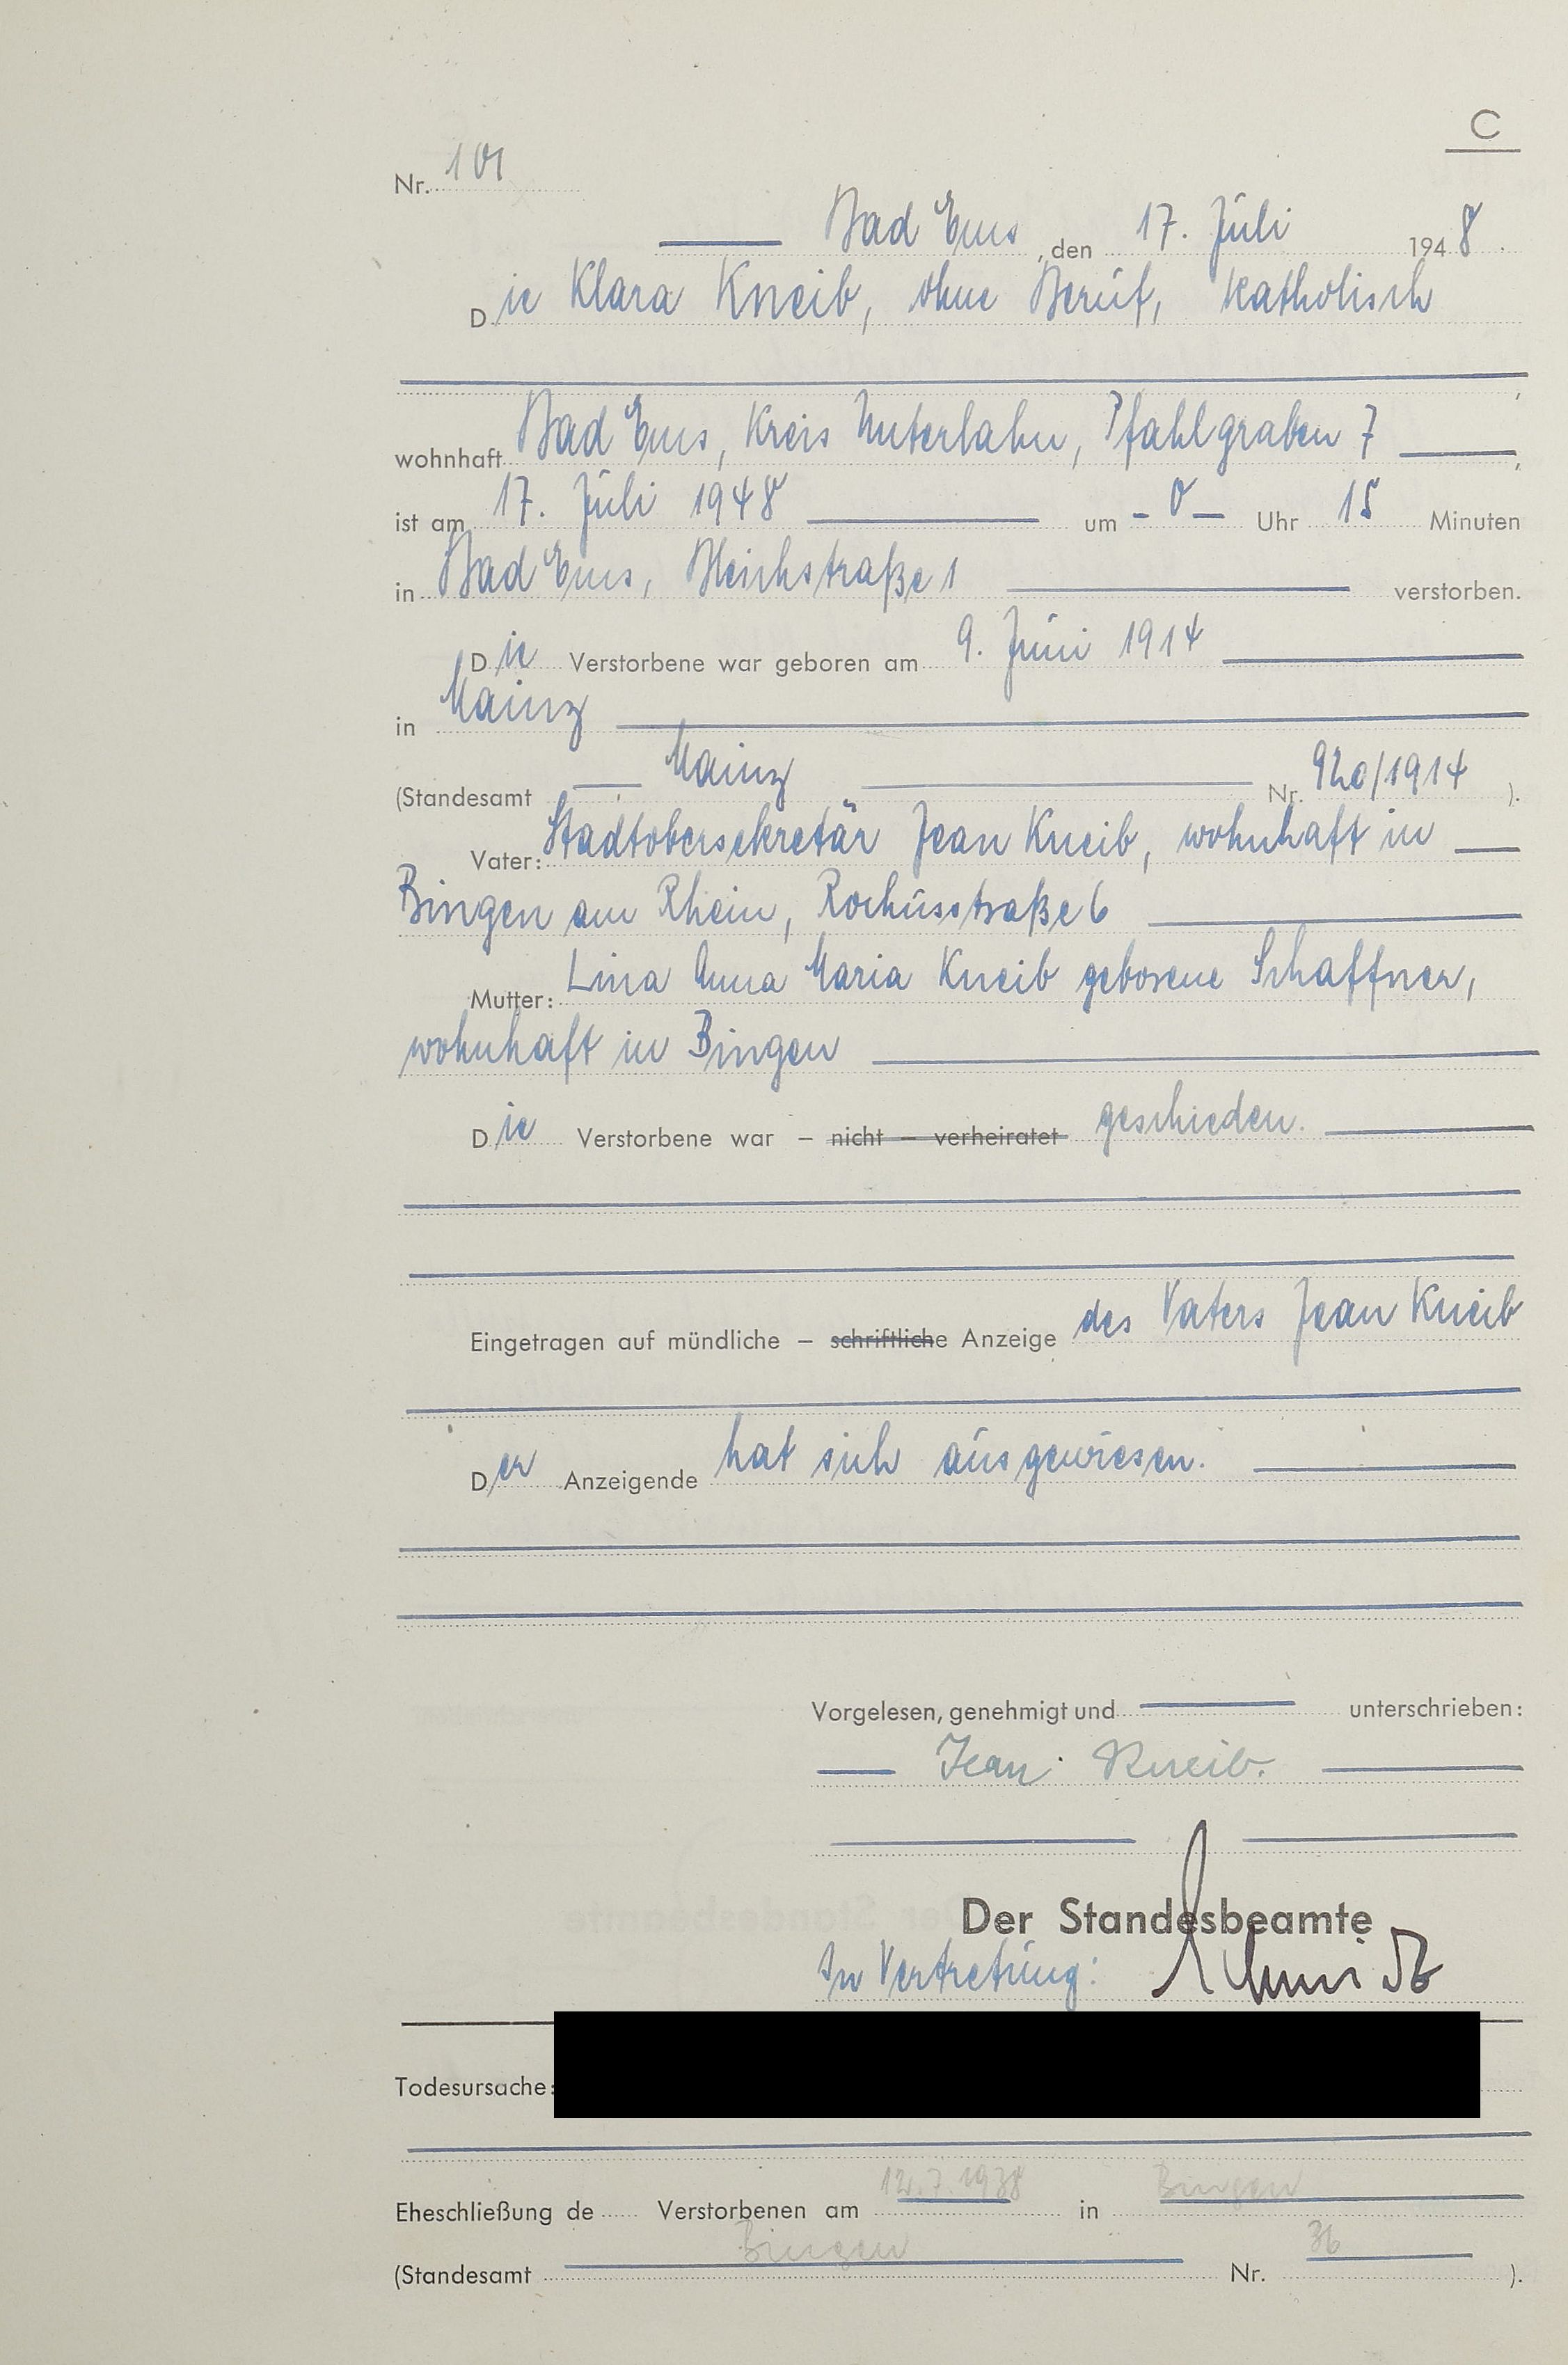 C
Nr. 101
Bad Ems, den 17. Juli 1948.
Die Klara Kneib, ohne Beruf, katholisch
,
wohnhaft Bad Ems, Kreis Unterlahn, Pfahlgraben 7,
ist am 17. Juli 1948 um - 0 - Uhr 15 Minuten
in Bad Ems, Bleichstraße 1 verstorben.
Die Verstorbene war geboren am 9. Juni 1914
in Mainz
(Standesamt Mainz Nr. 920/1914 ).
Vater: Stadtobersekretär Jean Kneib, wohnhaft in
Bingen am Rhein, Rochusstraße 6
Mutter: Lina Anna Maria Kneib geborene Schaffner,
wohnhaft in Bingen
Die Verstorbene war – nicht – verheiratet geschieden.
Eingetragen auf mündliche – schriftliche Anzeige des Vaters Jean Kneib
Der Anzeigende hat sich ausgewiesen.
Vorgelesen, genehmigt und unterschrieben:
Jean Kneib.
Der Standesbeamte
In Vertretung: Schmidt
Todesursache:
Eheschließung de Verstorbenen am 12.7.1938 in Bingen
(Standesamt Bingen Nr. 36 ).